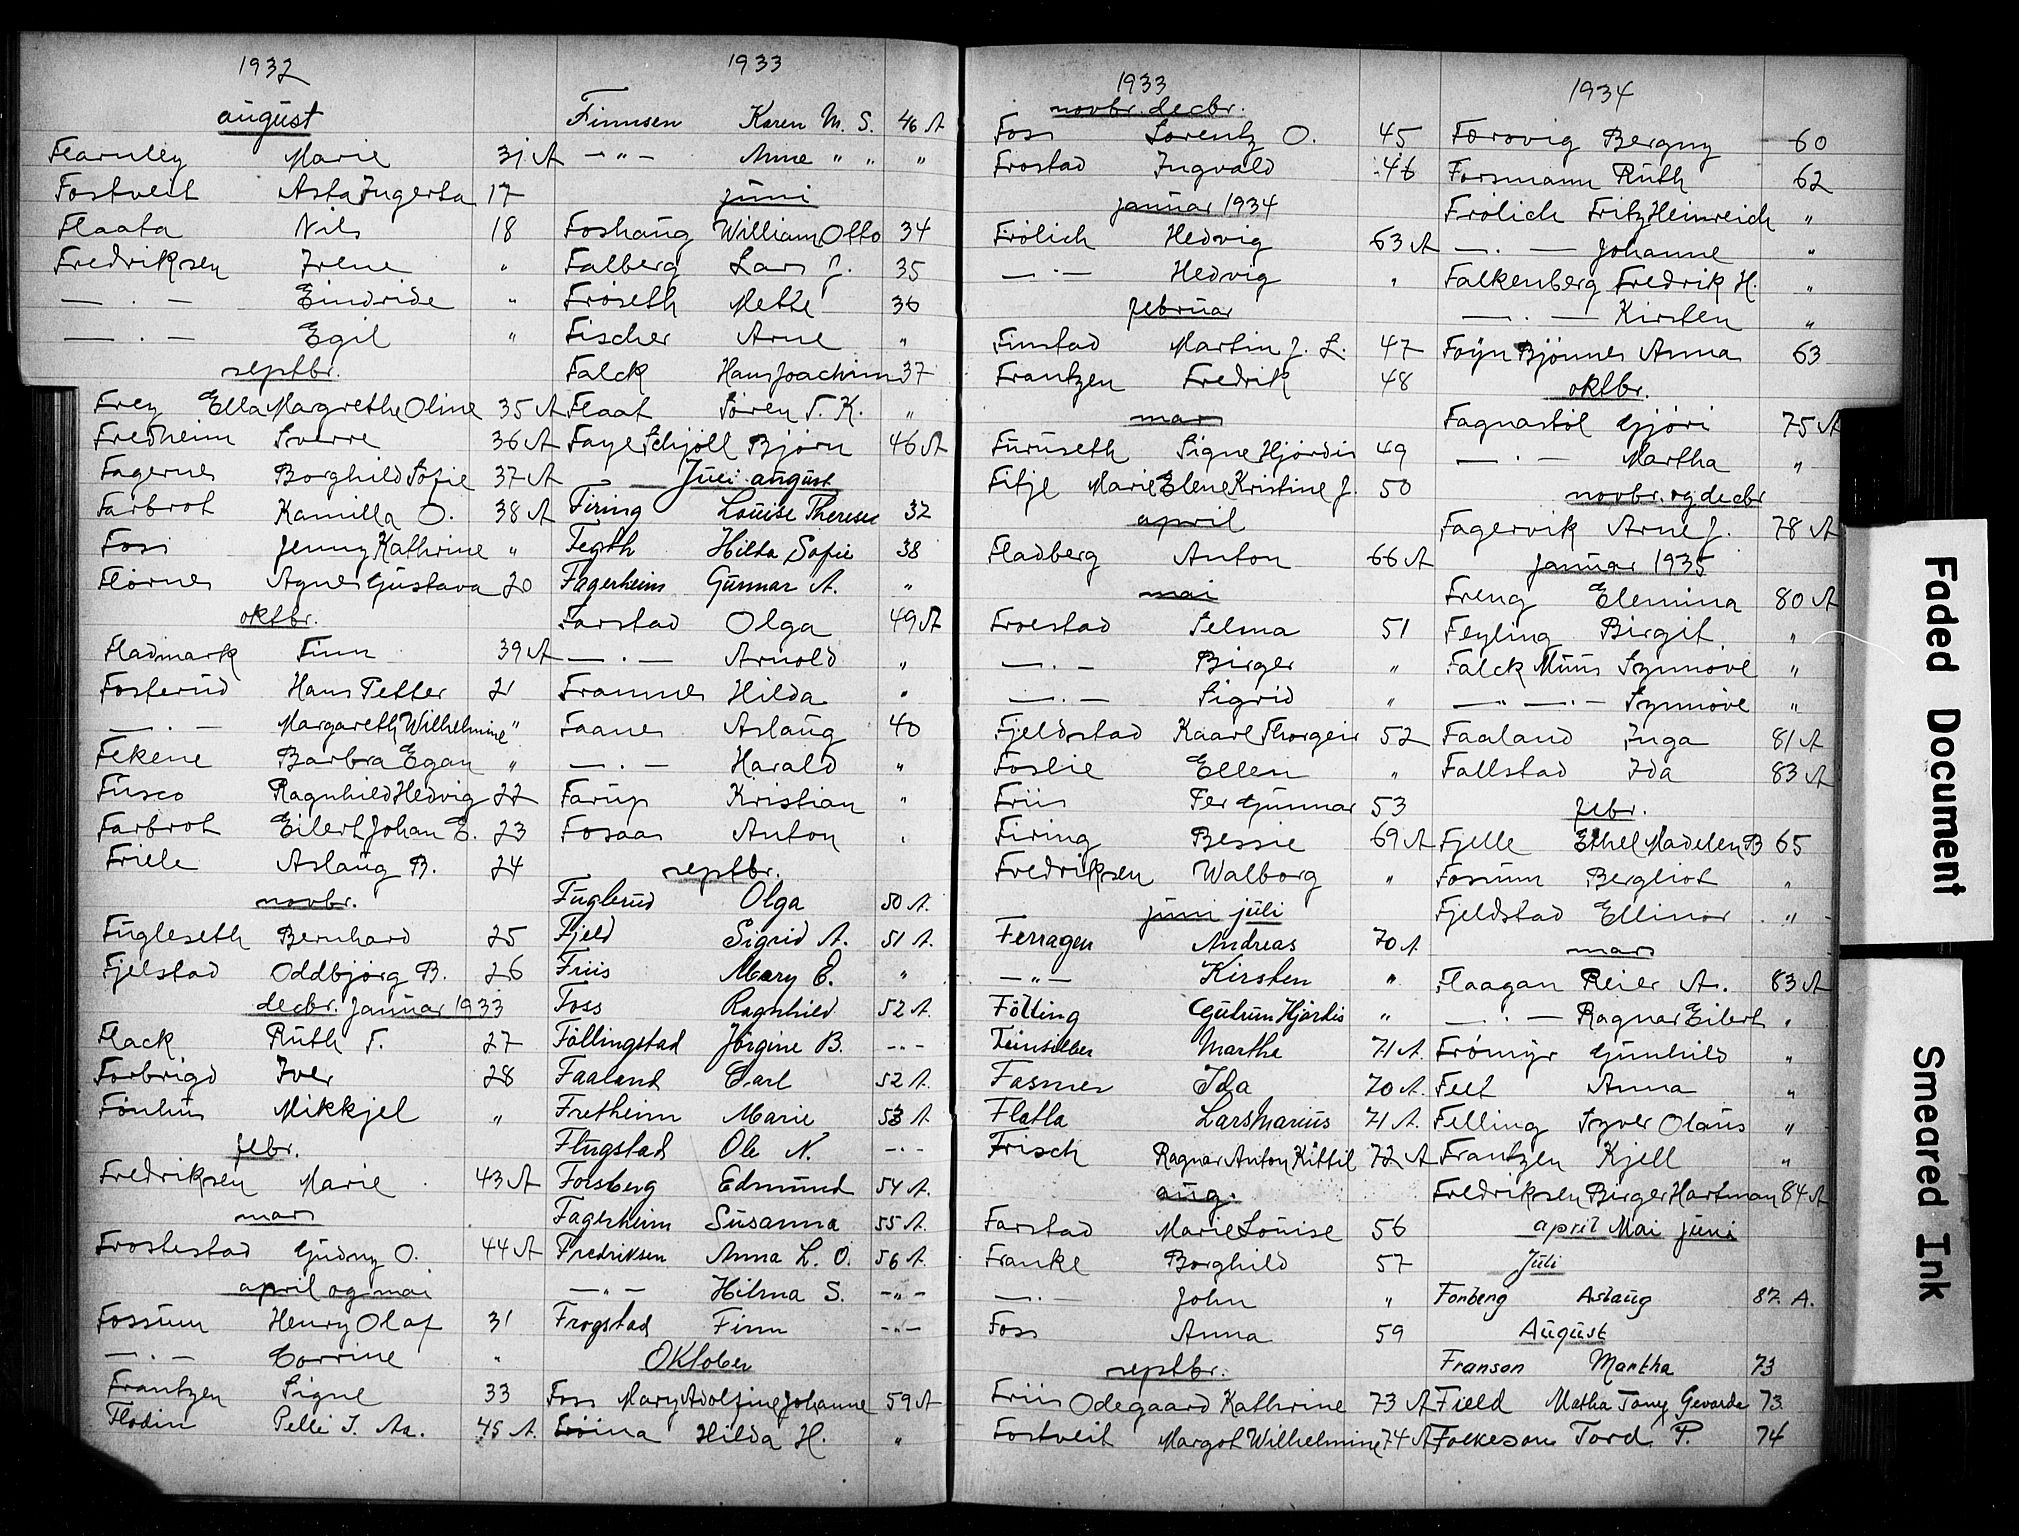 1932
august
Fearnley Marie 31 A
Fostveit Asta Ingerta 17
Flaata Nils 18
Fredriksen Irene "
— . — Eindride "
— . — Egil "
septbr.
Frey Ella Margrethe Oline 35 A
Fredheim Sverre 36 A
Fagernes Borghild Sofie 37 A
Farbrot Kamilla O. 38 A
Foss Jenny Kathrine "
Flørnes Agnes Gustava 20
oktbr.
Fladmark Finn 39 A
Fosterud Hans Petter 21
— . — Margareth Wilhelmine "
Fekene Barbra Egan "
Fusco Ragnhild Hedvig 22
Farbrot Eilert Johan E. 23
Friele Aslaug B. 24
novbr.
Fugleseth Bernhard 25
Fjelstad Oddbjørg B. 26
decbr. Januar 1933
Flack Ruth T. 27
Forbrigd Iver 28
Fønhus Mikkjel "
febr.
Fredriksen Marie 43 A
mars
Frostestad Gudny O. 44 A
april og mai
Fossum Henry Olaf 31
— . — Corrine "
Frantzen Signe 33
Flodin Pelli I. Aa. 45 A.
1933
Finnsen Karen M. S. 46 A
— " — Anne " " "
juni
Foshaug William Otto 34
Falberg Lars J. 35
Frøseth Mette 36
Fischer Arne "
Falck Hans Joachim 37
Flaat Søren T. K. "
Faye Schjøll Bjørn 46 A
Juli august
Firing Louise Therese 32
Feyth Hilda Sofie 38
Fagerheim Gunnar A. "
Farstad Olga 49 A
— . — Arnold "
Framnes Hilda "
Faanes Aslaug 40
— . — Harald "
Farup Kristian "
Fosaas Anton "
septbr.
Fuglerud Olga 50 A.
Fjeld Sigrid A. 51 A.
Friis Mary E. "
Foss Ragnhild 52 A.
Föllingstad Jörgine B. - . -
Faaland Carl 52 A.
Fretheim Marie 53 A.
Flugstad Ole N. - . -
Forsberg Edmund 54 A.
Fagerheim Susanna 55 A.
Fredriksen Anna L. O. 56 A.
— " — Hilma S. - " -
Frogstad Finn - " -
Oktober
Foss Mary Adolfine Johanne 59 A
Frøina Hilda H. "
1933
novbr. decbr.
Foss Lorentz O. 45
Frostad Ingvald 46
januar 1934
Frölich Hedvig 63 A
— . — Hedvig "
februar
Finstad Martin J. L. 47
Frantzen Fredrik 48
mars
Furuseth Signe Hjørdis 49
Fitje Marie Elene Kristine J. 50
april
Fladberg Anton 66 A
mai
Froestad Selma 51
— . — Birger "
— . — Sigrid "
Fjeldstad Kaare Thorgeir 52
Foslie Ellen "
Friis Per Gunnar 53
Firing Bessie 69 A
Fredriksen Walborg "
juni juli
Ferragen Andreas 70 A
— " — Kirsten "
Fölling Gudrun Hjördis "
Feinsilber Marthe 71 A.
Fasmer Ida 70 A.
Flatla Lars Marius 71 A.
Frisch Ragnar Anton Kittil 72 A
aug.
Farstad Marie Louise 56
Franke Borghild 57
— . John "
Foss Anna 59
septbr.
Friis Odegaard Kathrine 73 A
Fostveit Margot Wilhelmine 74 A
1934
Færøvig Bergny 60
Forsmann Ruth 62
Frölich Fritz Heinreich "
— . — Johanne "
Falkenberg Fredrik H. "
— . — Kirsten "
Foyn Bjønnes Anna 63
oktbr.
Fagnastöl Gjöri 75 A
— . — Martha "
novbr. og decbr
Fagervik Arne J. 78 A
Januar 1935
Freng Elemina 80 A
Feyling Birgit "
Falck Muus Synnøve "
— " — . — Synnøve "
Faaland Inga 81 A
Fallstad Ida 83 A
febr.
Fjelle Ethel Madelen B 65
Fossum Bergliot "
Fjeldstad Ellinor "
mars
Flaagan Reier A. 83 A
— . — Ragnar Eilert "
Frömyr Gunhild "
Feet Anna "
Felling Syver Olaus "
Frantzen Kjell "
Fredriksen Birger Hartman 84 A
april Mai juni
Juli
Fonberg Aslaug 87 A.
August
Franson Martha 73
Field Matha Tony Gevarda 73
Folkeson Tord P. 74
Faded Document
Smeared Ink